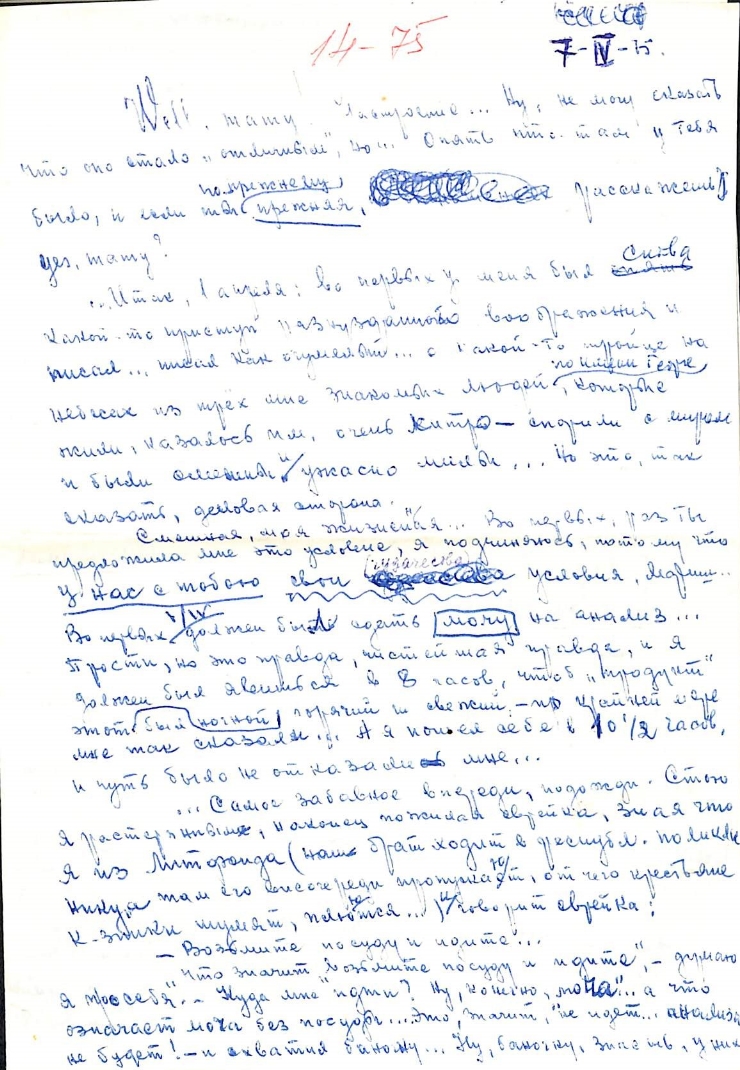 14-75
7-IV-75.
Well, тату! Настроение... Ну, не могу сказать
что оно стало „отличным", но... Опять что-там у тебя
по прежнему
было, и если ты прежняя, расскажешь
yes, тату?
...Итак, 1 апреля: во первых у меня был снова
какой-то приступ разнузданного воображения и
писал... писал как очумелый... о такой-то тройце на
небесах из трёх мне знакомых людей, которые
жили, казалось им, очень хитро – спорили с миром
и были смешны и ужасно милы... Но это, так
сказать, деловая сторона.
Смешная, моя жизненная... Во первых, раз ты
предложила мне это условие, я подчиняюсь, потому что
у нас с тобою свои условия,
Во первых должен был сдать мочу на анализ...
Прости, но это правда, чистейшая правда, и я
должен был явиться в 8 часов, чтоб „продукт"
этот был ночной, горячий и свежий – по крайней мере
мне так сказали... А я пошел себе в 10 1/2 часов,
и чуть было не отказали мне...
... Самое забавное впереди, подожди. Стою
я растерянный, наконец пожилая еврейка, зная что
я из Литфонда (наш брат ходит в республ. поликли
нику, а там его внеочереди пропускают, от чего крестьяне
к-зники шумят, плюются...) и говорит еврейка:
– Возьмите посуду и идите...
"Что значит возьмите посуду и идите", – думаю
я про себя. – Куда мне "идти"? Ну, конечно, моча... а что
означает моча без посуды... Это, значит, "не идет... анализа
не будет! – и схватил баночку... Ну, баночку, знаешь, у них